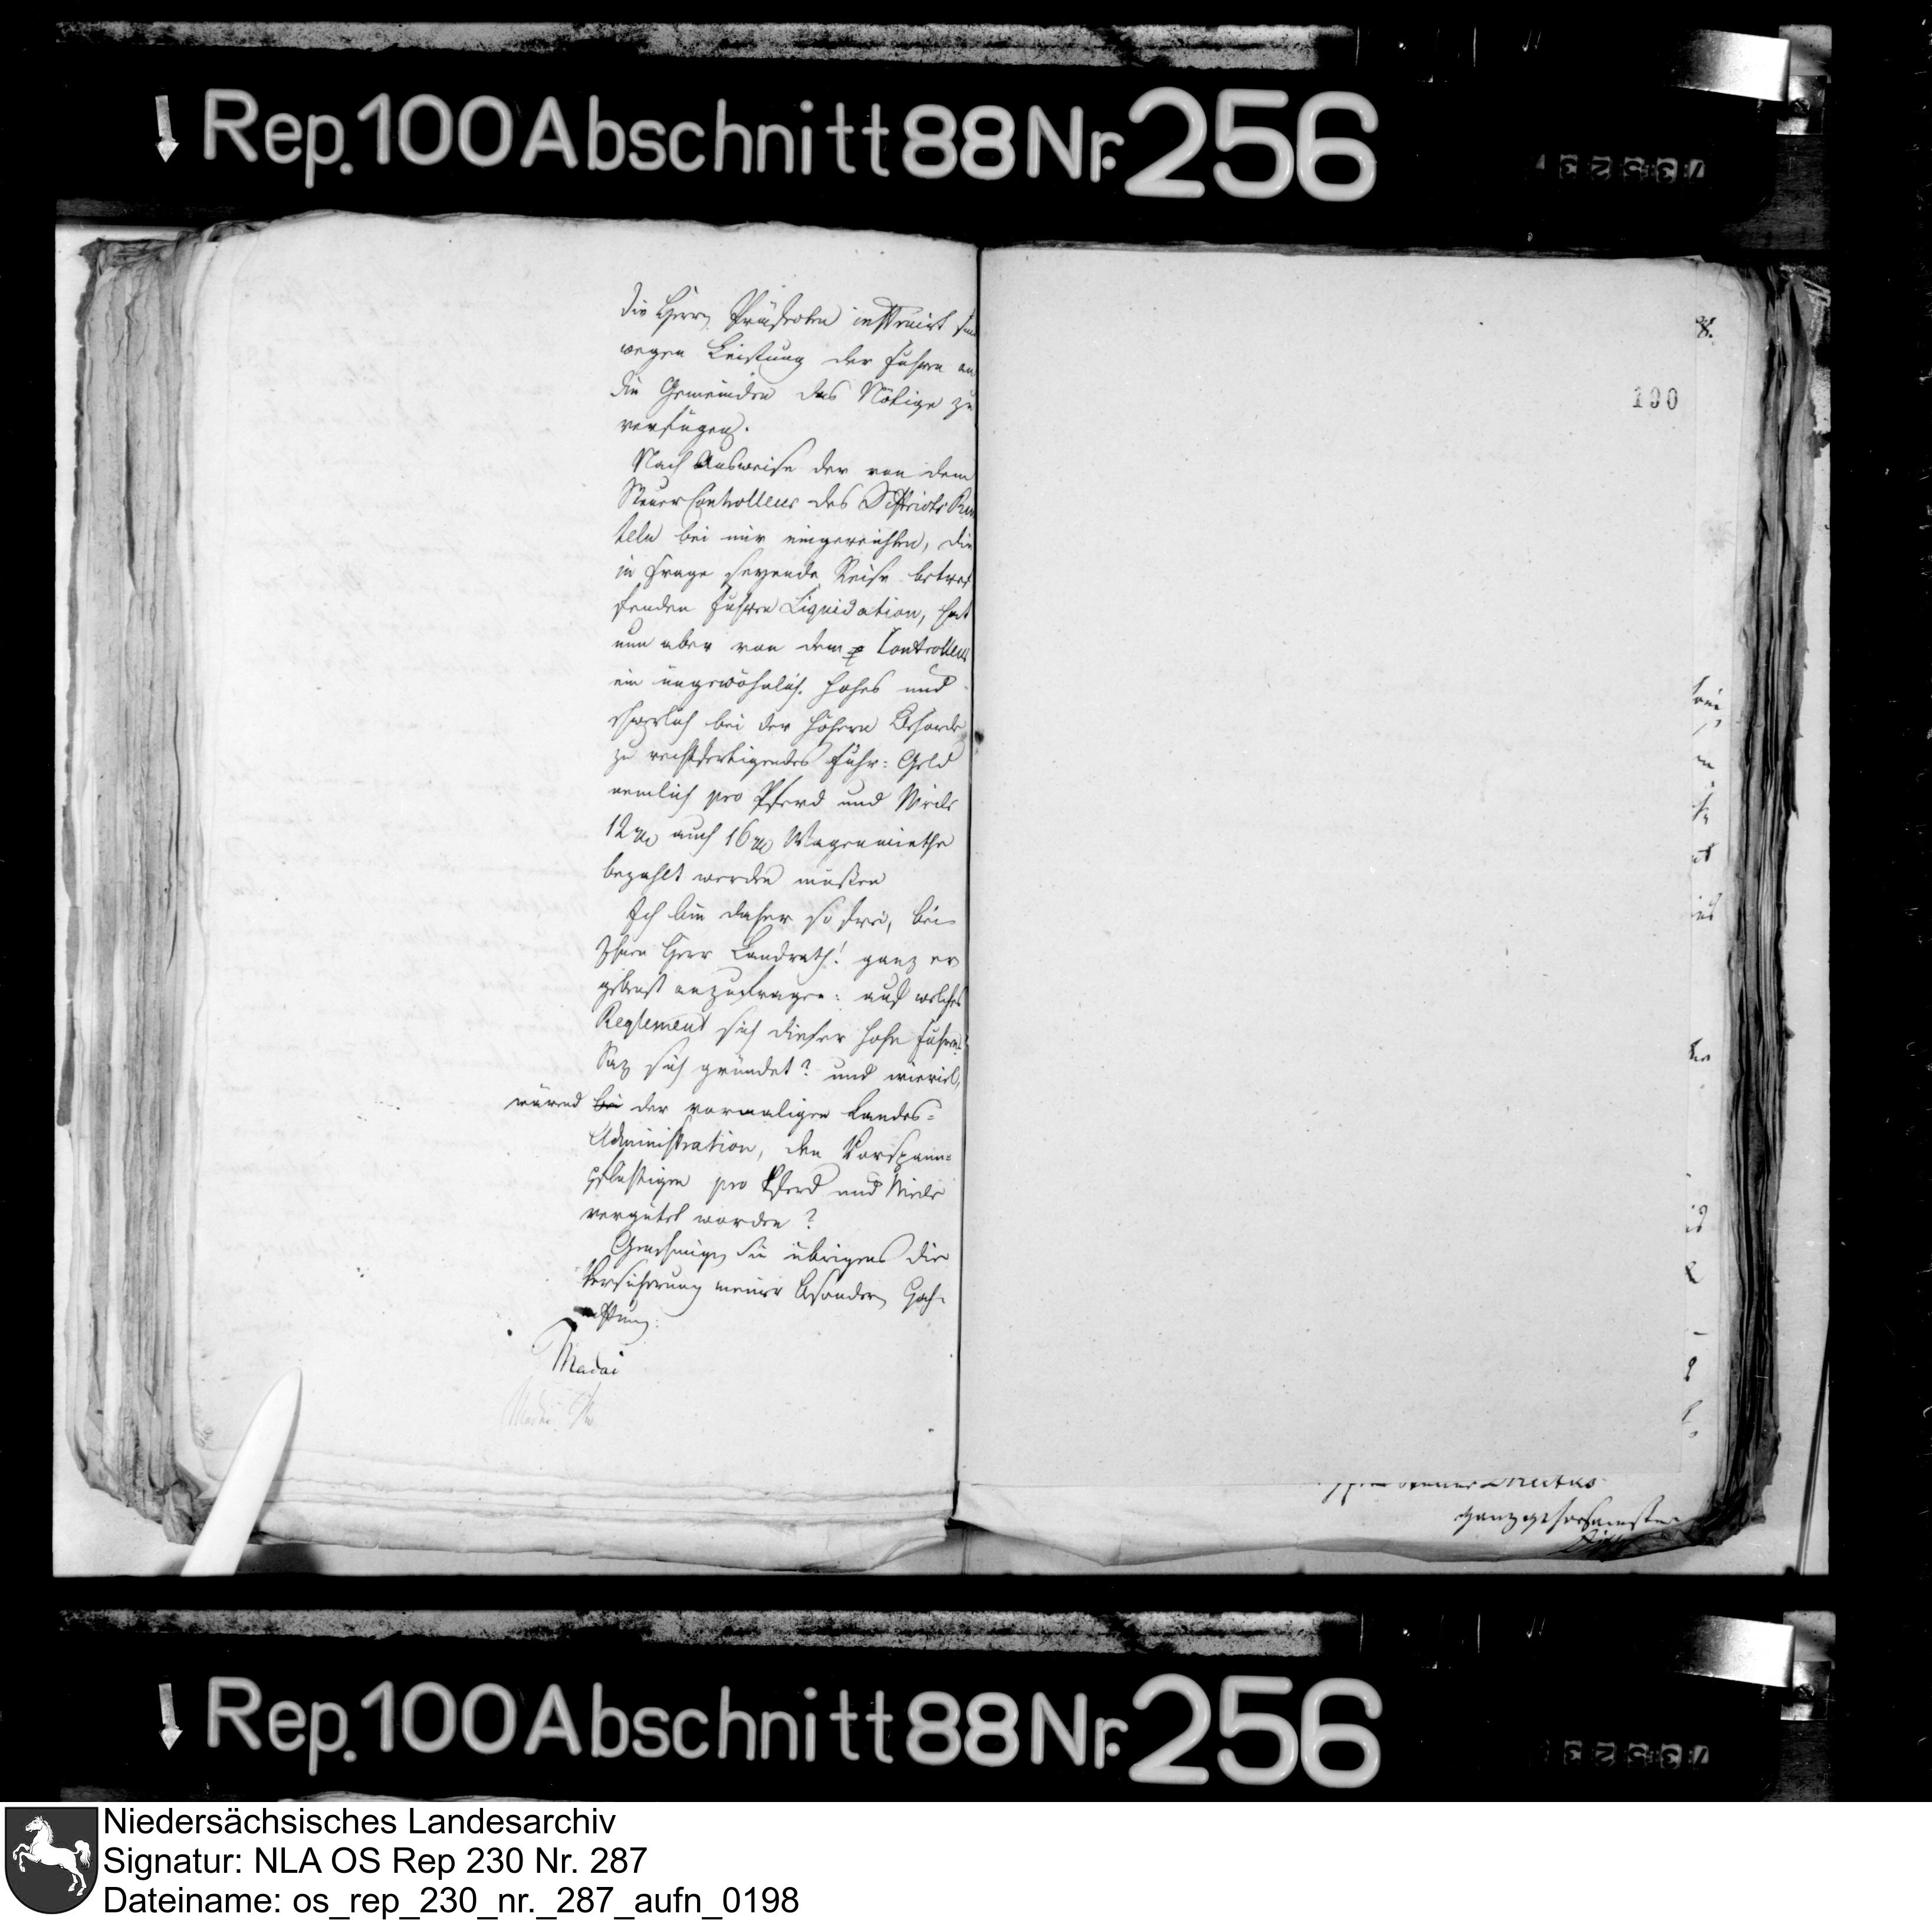 Rep. 100 Abschnitt 88 Nr. 256
die Herrn Präfecten instruirt sind
wegen Leistung der Fuhren an
die Gemeinden das Nötige zu
verfügen.
Nach Ausweise der von dem
Steuer Controlleur des Districts Rin
teln bei mir eingereichten, die
in Frage seyende Reise betref
fenden Fuhren Liquidation, hat
nun aber von dem Controlleur
ein ungewöhnlich hohes und
schwerlich bei der höhern Behörde
zu rechtfertigendes Fuhr-Geld
nemlich pro Pferd und Meile
12 auch 16 Wagenmiethe
bezahlt werden müßen
Ich bin daher so frei, bei
Ihnen Herr Landrath! ganz er
gebenst anzufragen: auf welches
Reglement sich dieser hohe Fuhren-
Saz sich gründet? und wieviel,
wärend bei der vormaligen Landes-
Administration, den Vorspann-
pflichtigen pro Pferd und Meile
vergütet worden?
Genehmigen Sie übrigens die
Versicherung meiner besondern Hoch-
achtung.
Madai
8.
100
ganz gehorsamster
Rep. 100 Abschnitt 88 Nr. 256
Niedersächsisches Landesarchiv
Signatur: NLA OS Rep 230 Nr. 287
Dateiname: os_rep_230_nr._287_aufn_0198